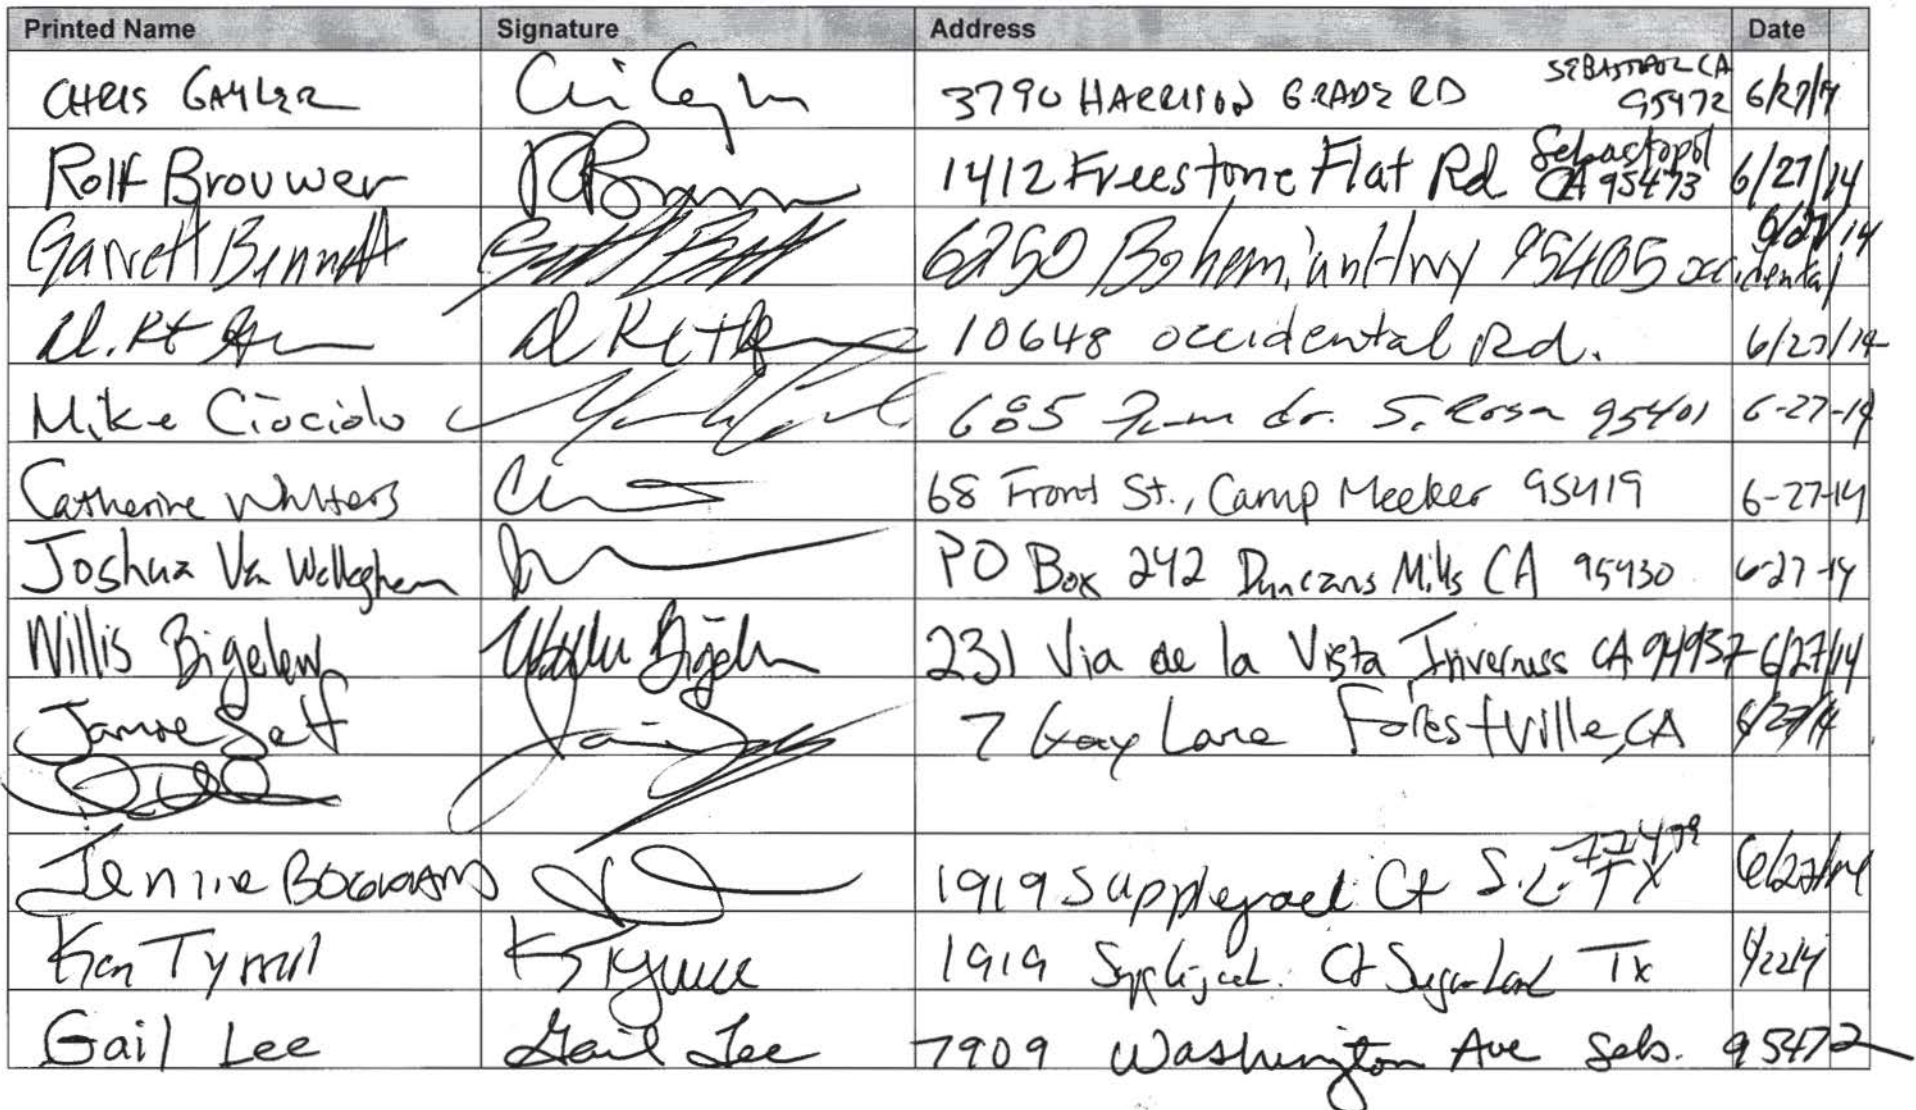 Printed Name Signature Address Date
CHRIS GAYLER 3790 HARRISON GRADE RD SEBASTOPOL CA 95472 6/27/14
Rolf Brouwer 1412 Freestone Flat Rd Sebastopol CA 95473 6/27/14
Garrett Bennett 6250 Bohemian Hwy 95405 occidental 6/27/14
10648 occidental Rd. 6/27/14
Mike Ciociolo 685 dr. S. Rosa 95401 6-27-14
Catherine Walters 68 Front St., Camp Meeker 95419 6-27-14
Joshua Van PO Box 242 Duncans Mills CA 95430 6-27-14
Willis Bigelow 231 Via de la Vista Inverness CA 94937 6/27/14
Jamie Self 7 Lane Forestville, CA 6/27/14
Jennie 1919 Ct S.L. TX 77479 6/27/14
Ken 1919 Ct Sugar Land Tx
Gail Lee Gail Lee 7909 Washington Ave Seb. 95472